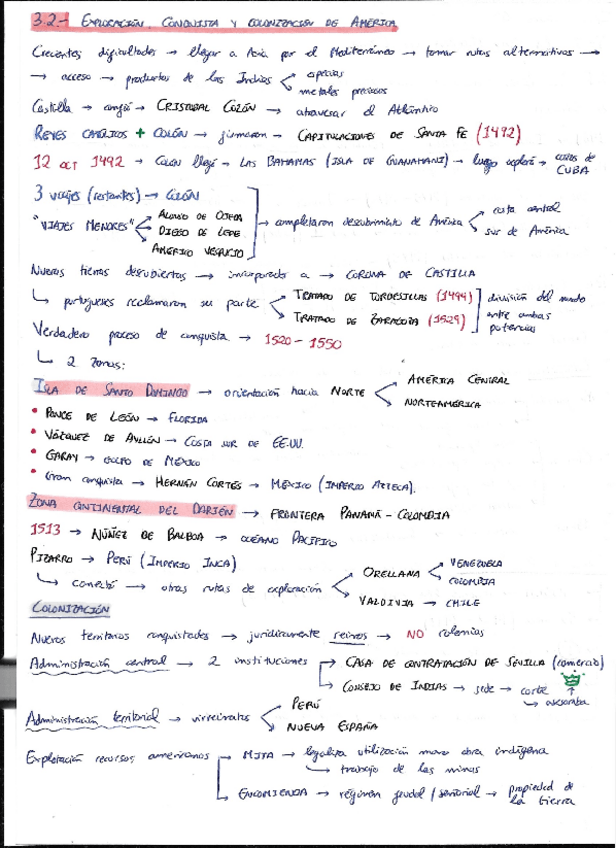 3.2.- EXPLORACIÓN, CONQUISTA Y COLONIZACIÓN DE AMÉRICA
Crecientes dificultades → llegar a Asia por el Mediterráneo → tomar rutas alternativas →
→ acceso → productos de las Indias < especias
metales preciosos
Castilla → CRISTOBAL COLÓN → atravesar el Atlántico
REYES CATÓLICOS + COLÓN → firmaron → CAPITULACIONES DE SANTA FE (1492)
12 OCT 1492 → COLÓN llegó → LAS BAHAMAS (ISLA DE GUANAHANI) → luego exploró → costas de CUBA
3 viajes (restantes) → COLÓN
"VIAJES MENORES" < ALONSO DE OJEDA
DIEGO DE LEPE
AMÉRICO VESPUCIO
→ completaron descubrimiento de América < costa central
sur de América
Nuevas tierras descubiertas → incorporado a → CORONA DE CASTILLA
↳ portugueses reclamaron su parte < TRATADO DE TORDESILLAS (1494)
TRATADO DE ZARAGOZA (1529)
división del mundo
entre ambas
potencias
Verdadero proceso de conquista → 1520 - 1550
↳ 2 zonas:
ISLA DE SANTO DOMINGO → orientación hacia NORTE < AMÉRICA CENTRAL
NORTEAMÉRICA
• PONCE DE LEÓN → FLORIDA
• VÁZQUEZ DE AYLLÓN → COSTA SUR DE EE.UU.
• GARAY → GOLFO DE MÉXICO
• Gran conquista → HERNÁN CORTÉS → MÉXICO (IMPERIO AZTECA).
ZONA CONTINENTAL DEL DARIÉN → FRONTERA PANAMÁ - COLOMBIA
1513 → NÚÑEZ DE BALBOA → OCÉANO PACÍFICO
PIZARRO → PERÚ (IMPERIO INCA)
↳ conectó → otras rutas de exploración < ORELLANA < VENEZUELA
COLOMBIA
VALDIVIA → CHILE
COLONIZACIÓN
Nuevos territorios conquistados → jurídicamente reinos → NO colonias
Administración central → 2 instituciones → CASA DE CONTRATACIÓN DE SEVILLA (comercio)
↳ CONSEJO DE INDIAS → sede → corte
↳ asesoraba
Administración territorial → virreinatos < PERÚ
NUEVA ESPAÑA
Explotación recursos americanos → MITA → legaliza utilización mano obra indígena
↳ trabajo de las minas
↳ ENCOMIENDA → régimen feudal / señorial → propiedad de
la tierra